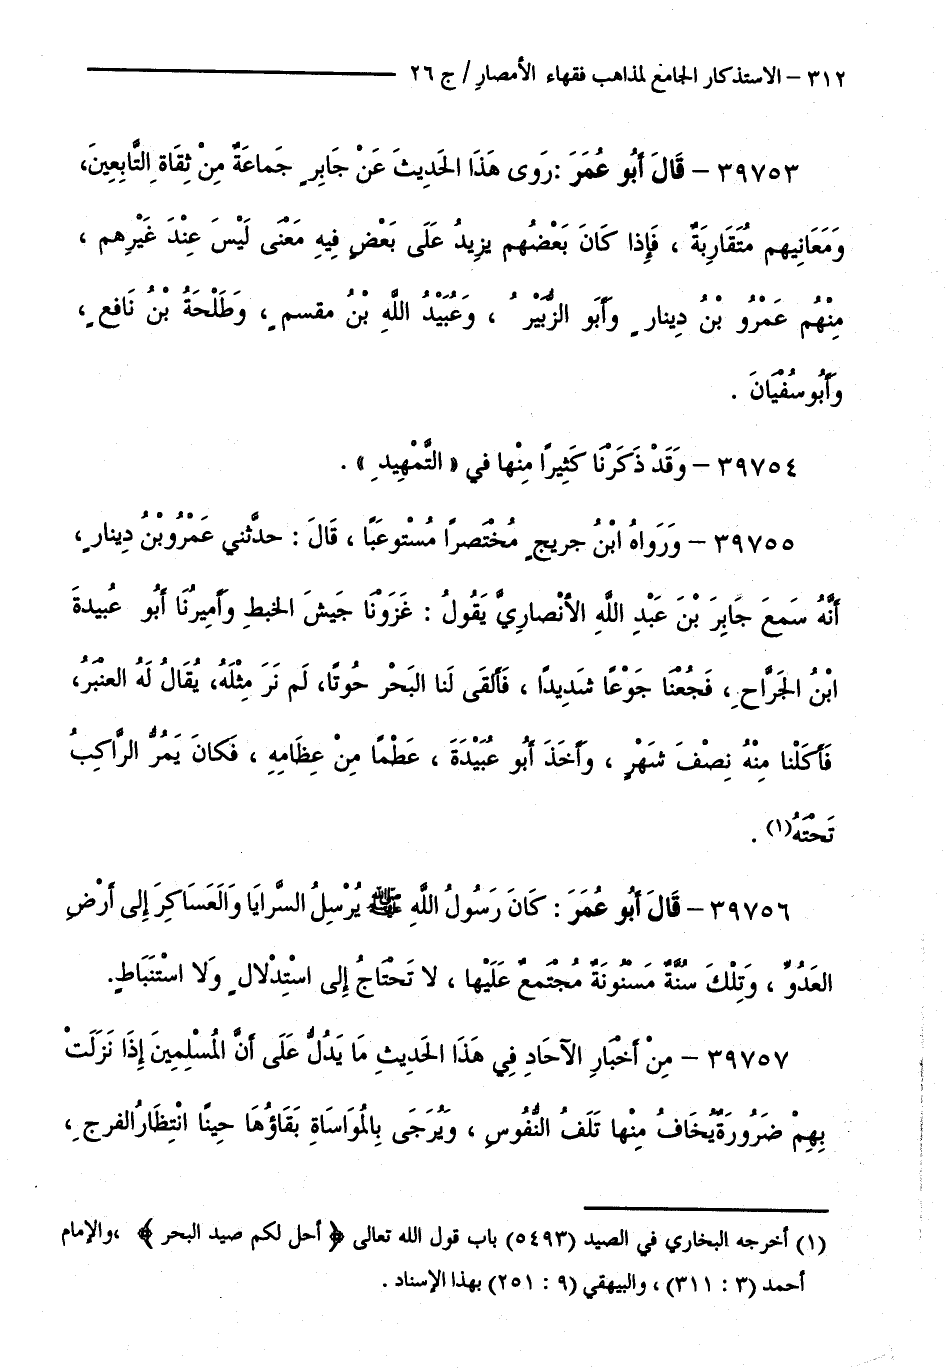 ٣١٢ – الاستذكار الجامع لمذاهب فقهاء الأمصار / ج ٢٦
٣٩٧٥٣ – قَالَ أَبُو عُمَرَ : رَوى هَذَا الحَدِيثَ عَنْ جَابِرٍ جَماعَةٌ مِنْ ثِقَاةِ التَّابِعِينَ،
وَمَعَانِيهم مُتَقَارِبَةٌ ، فَإِذا كَانَ بَعْضُهم يزِيدُ عَلَى بَعْضٍ فِيهِ مَعْنَى لَيْسَ عِنْدَ غَيْرِهم ،
مِنْهُم عَمْرُو بْنُ دِينار ٍ وأَبَو الزُّبَيْرُ ، وَعُبَيْدُ اللَّهِ بْنُ مقسم ٍ، وَطَلْحَةُ بْنُ نَافع ٍ،
وَأَبُو سُفْيَانَ .
٣٩٧٥٤ – وَقَدْ ذَكَرْنَا كَثِيرًا مِنْها في « التَّمْهِيدِ » .
٣٩٧٥٥ – وَرَوَاهُ ابْنُ جريج ٍ مُخْتَصرًا مُسْتوعَبًا ، قَالَ : حدَّثني عَمْرُو بْنُ دِينار ٍ،
أَنَّهُ سَمعَ جَابِرَ بْنَ عَبْدِ اللَّهِ الأَنْصارِيَّ يَقُولُ : غَزَوْنَا جَيشَ الخبطِ وأَميرُنَا أَبُو عُبيدةَ
ابْنُ الجَرَّاح ِ، فَجُعْنَا جَوْعًا شَدِيدًا ، فَأَلقَى لَنا البَحْر حُوتًا، لَم نَرَ مِثْلَهُ، يُقَالُ لَهُ العنْبَرُ،
فَأَكَلْنا مِنْهُ نِصْفَ شَهْرٍ ، وأَخَذَ أَبُو عُبَيْدَةَ ، عَظْمًا مِنْ عِظَامِهِ ، فَكانَ يَمُرُّ الرَّاكِبُ
تَحْتَهُ(١) .
٣٩٧٥٦ – قَالَ أَبُو عُمَرَ : كَانَ رَسُولُ اللَّهِ ﷺ يُرْسِلُ السَّرَايَا وَالعَسَاكِرَ إِلى أَرْضِ
العَدُوِّ ، وَتِلْكَ سُنَّةٌ مَسْنُونَةٌ مُجْتَمعٌ عَلَيْها ، لا تَحْتَاجُ إِلى اسْتِدْلال ٍ وَلا اسْتِنَباطٍ.
٣٩٧٥٧ – مِنْ أَخْبَارِ الآحَادِ فِي هَذَا الحَدِيثِ مَا يَدُلُّ عَلَى أَنَّ المُسْلِمِينَ إِذَا نَزَلَتْ
بِهِمْ ضَرُورَةٌ يُخَافُ مِنْها تَلَفُ النُّفُوسِ ، وَيُرَجَى بِالمُوَاسَاةِ بَقَاؤُهَا حِينًا انْتِظَارُ الفرج ِ،
(١) أخرجه البخاري في الصيد (٥٤٩٣) باب قول الله تعالى ﴿ أحل لكم صيد البحر ﴾ ، والإمام
أحمد (٣ : ٣١١) ، والبيهقي (٩ : ٢٥١) بهذا الإسناد .